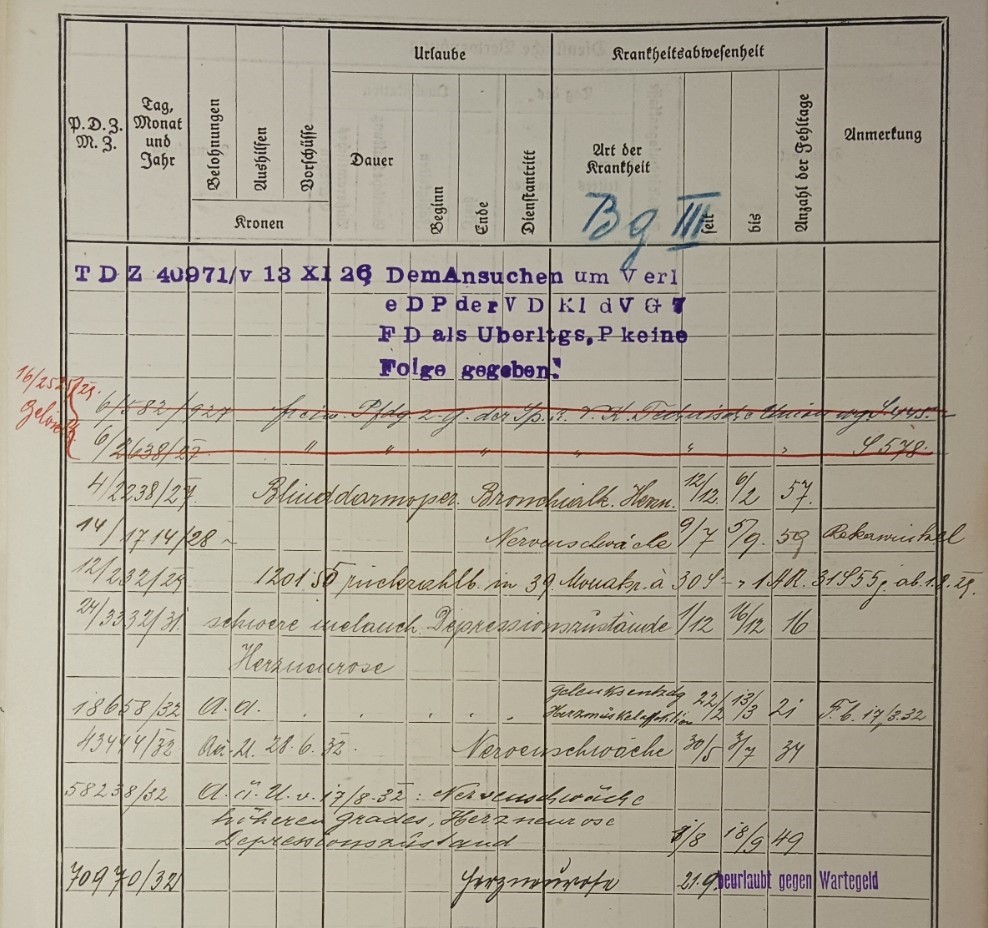 Urlaube
Krankheitsabwesenheit
P.D.Z. M.Z.
Tag, Monat und Jahr
Belohnungen
Aushilfen
Vorschüsse
Kronen
Dauer
Beginn
Ende
Dienstantritt
Art der Krankheit
seit
bis
Anzahl der Fehltage
Anmerkung
Bg III
T D Z 40971/v 13 XI 26 Dem Ansuchen um Verl
e D P der V D Kl d V G 7
F D als Uberltgs,P keine
Folge gegeben.
6/582/927 freiw. Pfdg z. g. der Technische Union
6/2638/27 " " " " " " S 578.-
4/2238/27 Blinddarmoper. Bronchialk. 12/12. 6/2 57.
14/1714/28 Nervenschwäche 9/7 5/9. 59 Rekawinkel
12/232/29 1201 S rückzahlb. in 39 Monatr. à 30 S 31 S 55 g. ab 1.2.29.
24/3332/31 schwere melanch. Depressionszustände 1/12 16/12 16
Herzneurose
18658/32 a. a. Gelenksentzdg 22/2 13/3 21 F.b. 17/3.32
Herzmuskelaffektion
43444/32 28.6.32. Nervenschwäche 30/5 3/7 34
58238/32 A. ä. U. v. 17/8.32: Nervenschwäche
höheren Grades, Herzneurose
Depressionszustand 1/8 18/9 49
70970/32 Herzneurose 21.9. beurlaubt gegen Wartegeld